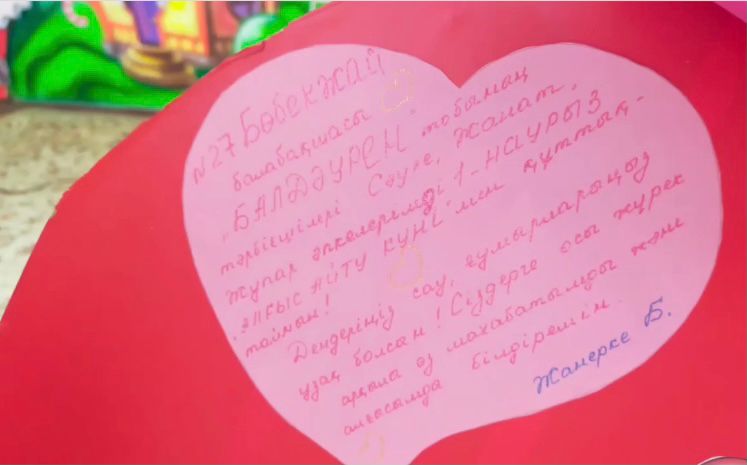 №27 Бөбекжай
балабақшасы
"БАЛДӘУРЕН" тобының
тәрбиешілері Сәуле, Жанат,
Жупар әпкелерімді 1-НАУРЫЗ
"АЛҒЫС АЙТУ КҮНІ"-мен құттық-
таймын!
Дендеріңіз сау, ғұмырларыңыз
ұзақ болсан! Сіздерге осы жүрек
арқылы өз махабатымды және
алғысымды білдіремін.
Жанерке Б.